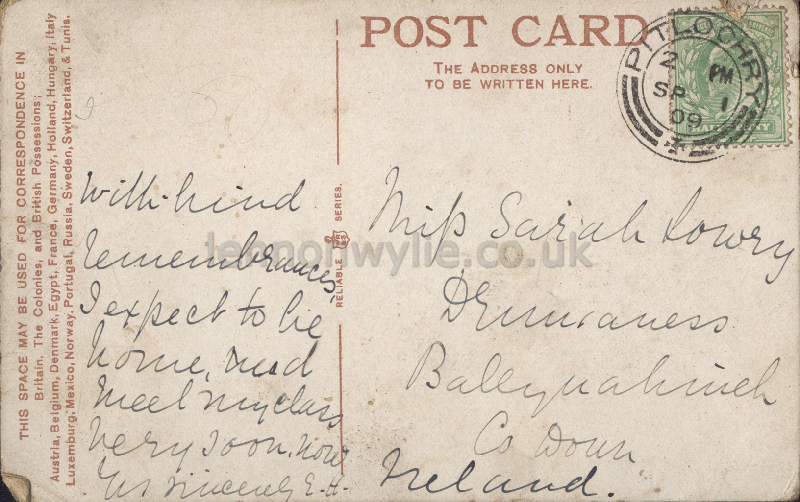 POST CARD
THE ADDRESS ONLY
TO BE WRITTEN HERE.
THIS SPACE MAY BE USED FOR CORRESPONDENCE IN
Britain, The Colonies, and British Possessions;
Austria, Belgium, Denmark, Egypt, France, Germany, Holland, Hungary, Italy
Luxemburg, Mexico, Norway, Portugal, Russia, Sweden, Switzerland, & Tunis.
RELIABLE SERIES.
PITLOCHRY
2 PM
SP 1
09
With kind
remembrances,
I expect to be
home, and
meet my class
very soon. now
Yrs sincerely E. H.
Miss Sarah Lowry
Drumaness
Ballynahinch
Co Down
Ireland.
lennonwylie.co.uk